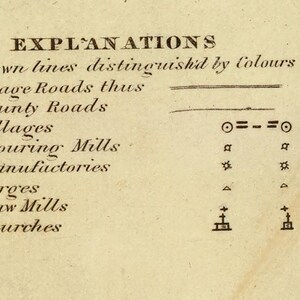 EXPLANATIONS
wn lines distinguish'd by Colours
age Roads thus
unty Roads
llages
ouring Mills
anufactories
rges
aw Mills
urches